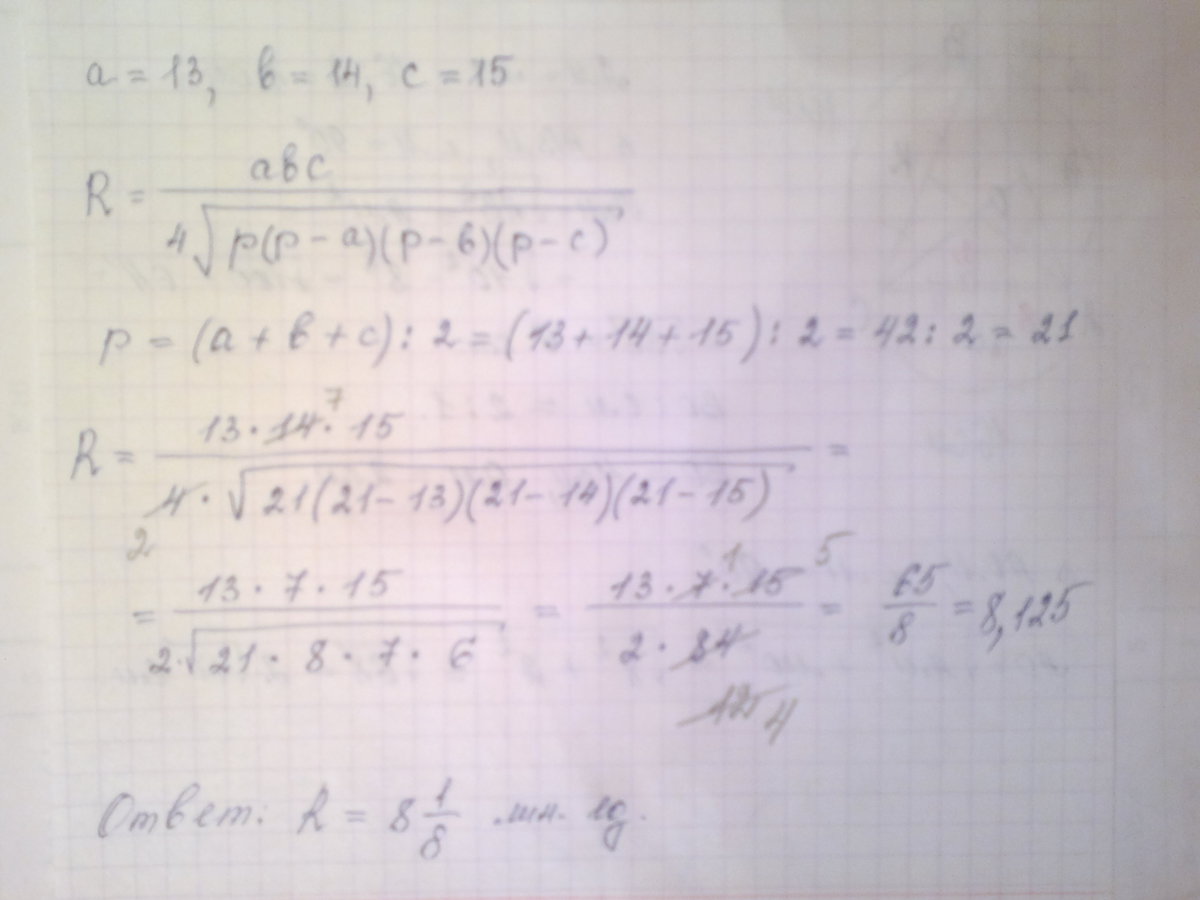 a = 13, в = 14, c = 15
R = aвc / 4√p(p - a)(p - в)(p - c)
p = (a + в + c) : 2 = (13 + 14 + 15) : 2 = 42 : 2 = 21
7
R = 13 · 14 · 15 / 4 · √21(21 - 13)(21 - 14)(21 - 15) =
2
1 5
= 13 · 7 · 15 / 2 · √21 · 8 · 7 · 6 = 13 · 7 · 15 / 2 · 84 = 65 / 8 = 8,125
12 4
Ответ: R = 8 1/8 лин. ед.